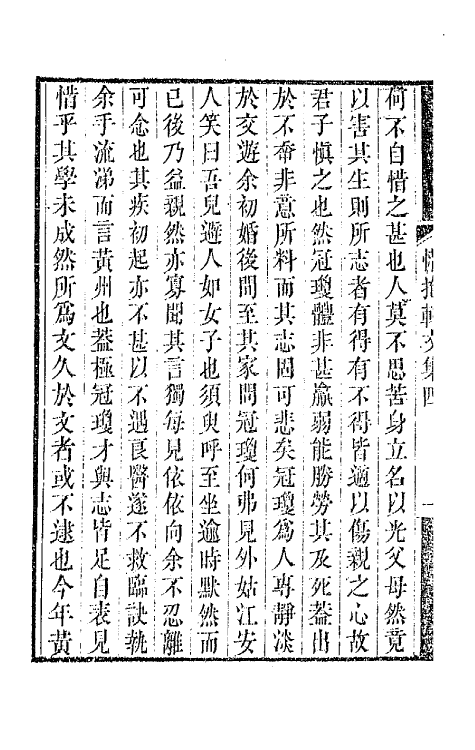 惜抱軒文集四
一
何不自惜之甚也人莫不思苦身立名以光父母然竟
以害其生則所志者有得有不得皆適以傷親之心故
君子慎之也然冠瓊體非甚羸弱能勝勞其及死蓋出
於不奇非意所料而其志固可悲矣冠瓊為人專靜淡
於交遊余初婚後間至其家問冠瓊何弗見外姑江安
人笑曰吾兒遊人如女子也須臾呼至坐逾時默然而
已後乃益親然亦寡聞其言獨每見依依向余不忍離
可念也其疾初起亦不甚以不遇良醫遂不救臨訣執
余手流涕而言黃州也蓋極冠瓊才與志皆足自表見
惜乎其學未成然所為文久於文者或不逮也今年黃